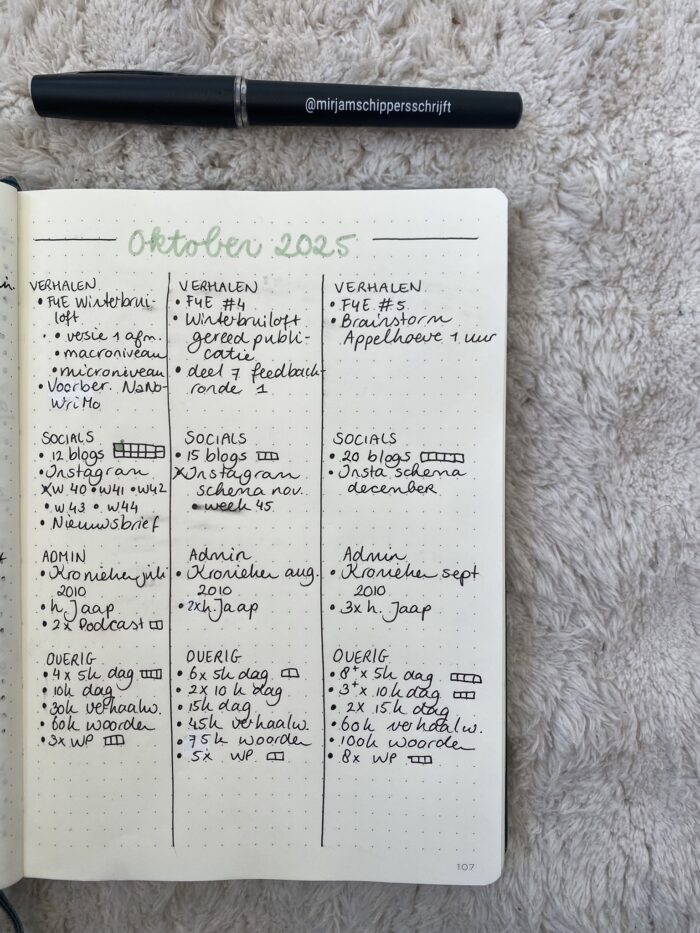 @mirjamschippersschrijft
Oktober 2025
VERHALEN
• F4E Winterbrui-
loft
• versie 1 afm.
• macroniveau
• microniveau
• Voorber. NaNo-
WriMo
SOCIALS
• 12 blogs
• Instagram
x w.40 • w41 • w42
• w43 • w44
• Nieuwsbrief
ADMIN
• Kronieken juli
2010
• h Jaap
• 2x Podcast
OVERIG
• 4x 5k dag
• 10k dag
• 30k verhaalw.
• 60k woorden
• 3x WP
VERHALEN
• F4E #4
• Winterbruiloft
gereed publi-
catie
• deel 7 feedback-
ronde 1
SOCIALS
• 15 blogs
x Instagram
schema nov.
• week 45
Admin
• Kronieken aug.
2010
• 2x h Jaap
OVERIG
• 6x 5k dag
• 2x 10k dag
• 15k dag
• 45k verhaalw.
• 75k woorden
• 5x WP
VERHALEN
• F4E #5
• Brainstorm
Appelhoeve 1 uur
SOCIALS
• 20 blogs
• Insta schema
december
Admin
• Kronieken sept
2010
• 3x h. Jaap
OVERIG
• 8+x 5k dag
• 3+x 10k dag
• 2x 15k dag
• 60k verhaalw.
• 100k woorden
• 8x WP
107